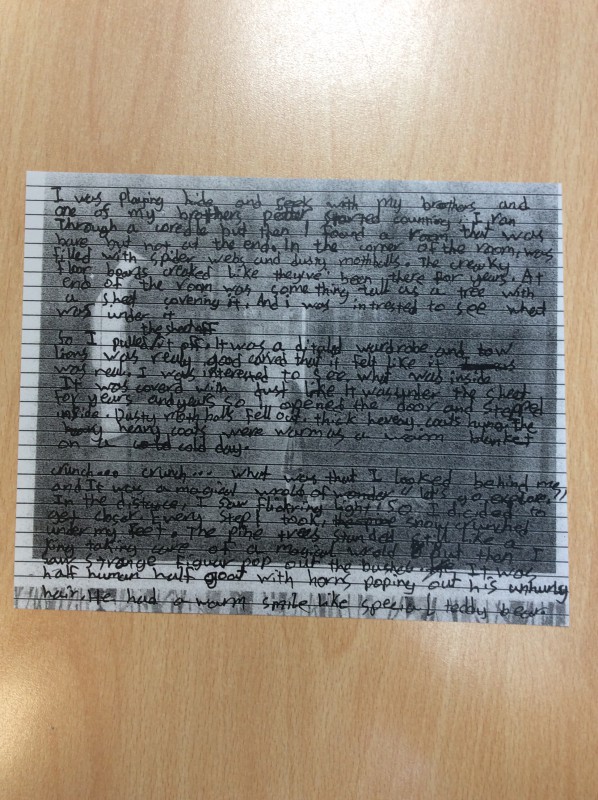 I was playing hide and seek with my brothers and
one of my brothers peater started counting. I ran
Through a coredle but then I found a room that was
bare but not at the end. In the corner of the room, was
filled with spider webs and dusty mothballs. The creaky
floor boards creaked like they've been there for years. At
end of the room was something tall as a tree with
a shet covering it. And i was intrested to see what
was under it
the shed off
So I pulled it off. It was a ditaled wardrobe and tow
lions was realy good carved that it felt like it
was real. I was interested to see what was inside
It was coverd with dust like it was under the sheet
for years and years so I opened the door and stepped
inside. Dusty moth balls fell out. thick hevey couts hung. The
heavy coats were warm as a warm blanket
on a cold day.
crunch... crunch... what was that I looked behind me
and it was a magical wrold of wonder "let's go explore."
In the distance, I saw flickring light! So I dicided to
get closer. Every step I took, snow crunched
under my feet. The pine trees standed still like a
king taking care of a magical wrold But then I
saw strange figuar pop out the bushes. It was
half human half goat with horns poping out his
hair. He had a warm smile like special teddy bears